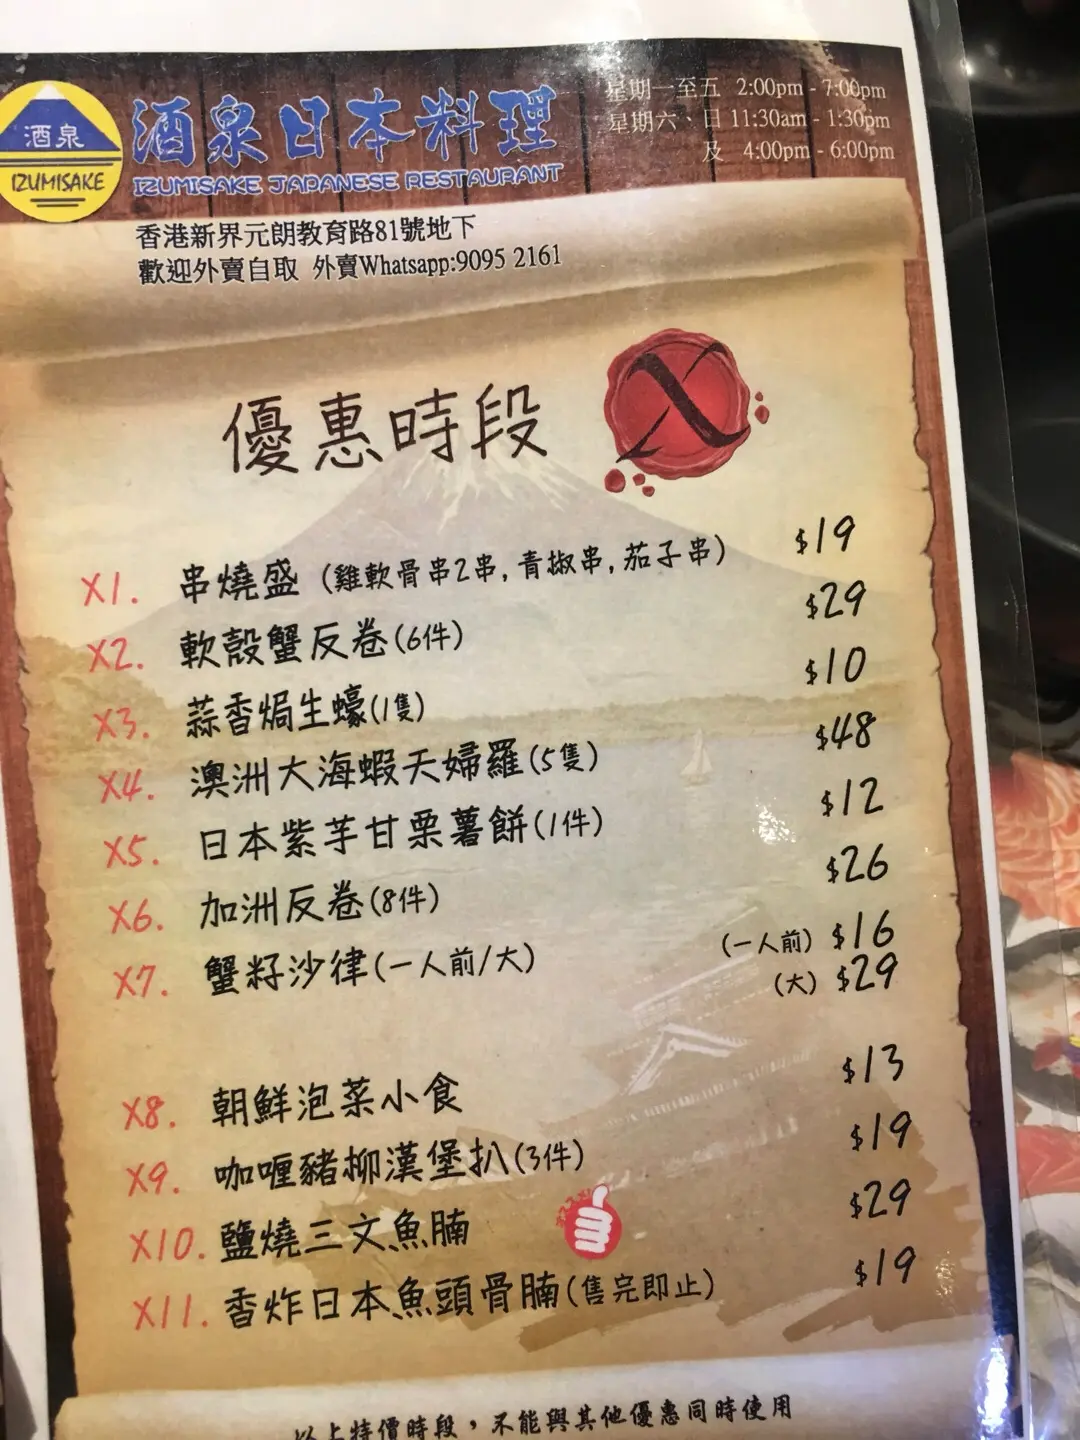 酒泉
IZUMISAKE
酒泉日本料理
IZUMISAKE JAPANESE RESTAURANT
星期一至五 2:00pm - 7:00pm
星期六、日 11:30am - 1:30pm
及 4:00pm - 6:00pm
香港新界元朗教育路81號地下
歡迎外賣自取 外賣Whatsapp:9095 2161
優惠時段 X
X1. 串燒盛 (雞軟骨串2串, 青椒串, 茄子串) $19
X2. 軟殼蟹反卷(6件) $29
X3. 蒜香焗生蠔(1隻) $10
X4. 澳洲大海蝦天婦羅(5隻) $48
X5. 日本紫芋甘栗薯餅(1件) $12
X6. 加洲反卷(8件) $26
X7. 蟹籽沙律(一人前/大) (一人前) $16
(大) $29
X8. 朝鮮泡菜小食 $13
X9. 咖喱豬柳漢堡扒(3件) $19
X10. 鹽燒三文魚腩 $29
X11. 香炸日本魚頭骨腩(售完即止) $19
以上特價時段，不能與其他優惠同時使用